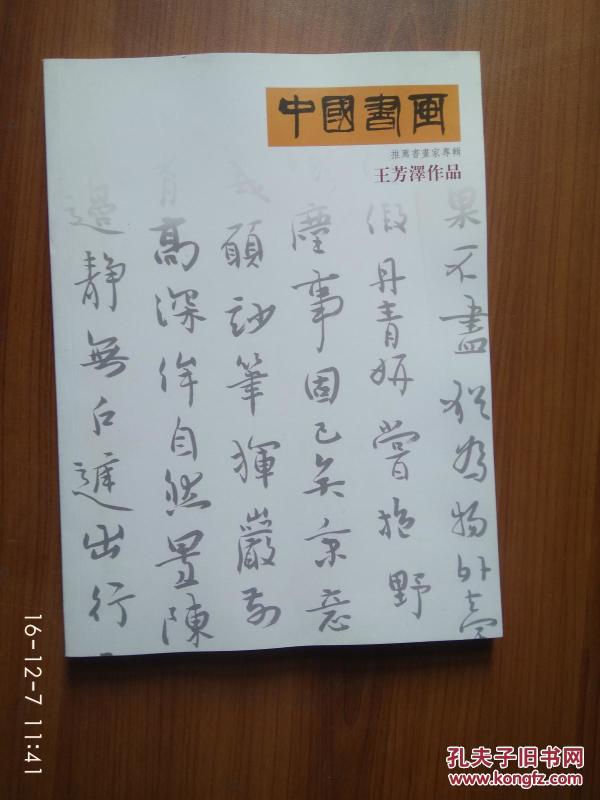 中國書畫
推薦書畫家專輯
王芳澤作品
果不盡猶為物外
假丹青妍嘗抱野
塵事固已矣秉意
顧妙筆揮嚴
高深侔自然置陳
邊靜無人遞出行
16-12-7 11:41
孔夫子旧书网
www.kongfz.com